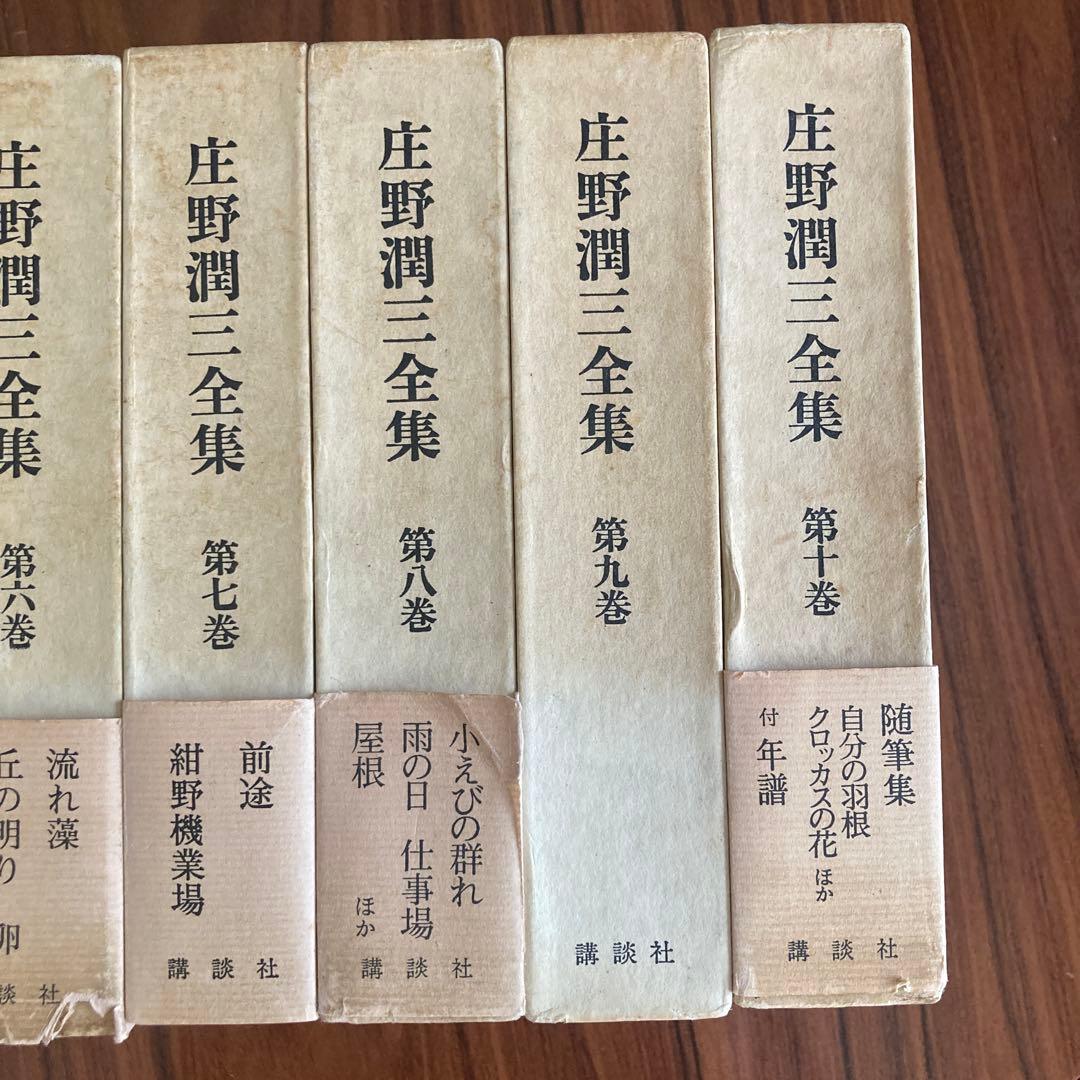 庄野潤三全集
第六巻
流れ藻
丘の明り 卵
談社
庄野潤三全集
第七巻
前途
紺野機業場
講談社
庄野潤三全集
第八巻
小えびの群れ
雨の日 仕事場
屋根
ほか
講談社
庄野潤三全集
第九巻
講談社
庄野潤三全集
第十巻
随筆集
自分の羽根
クロッカスの花 ほか
付 年譜
講談社